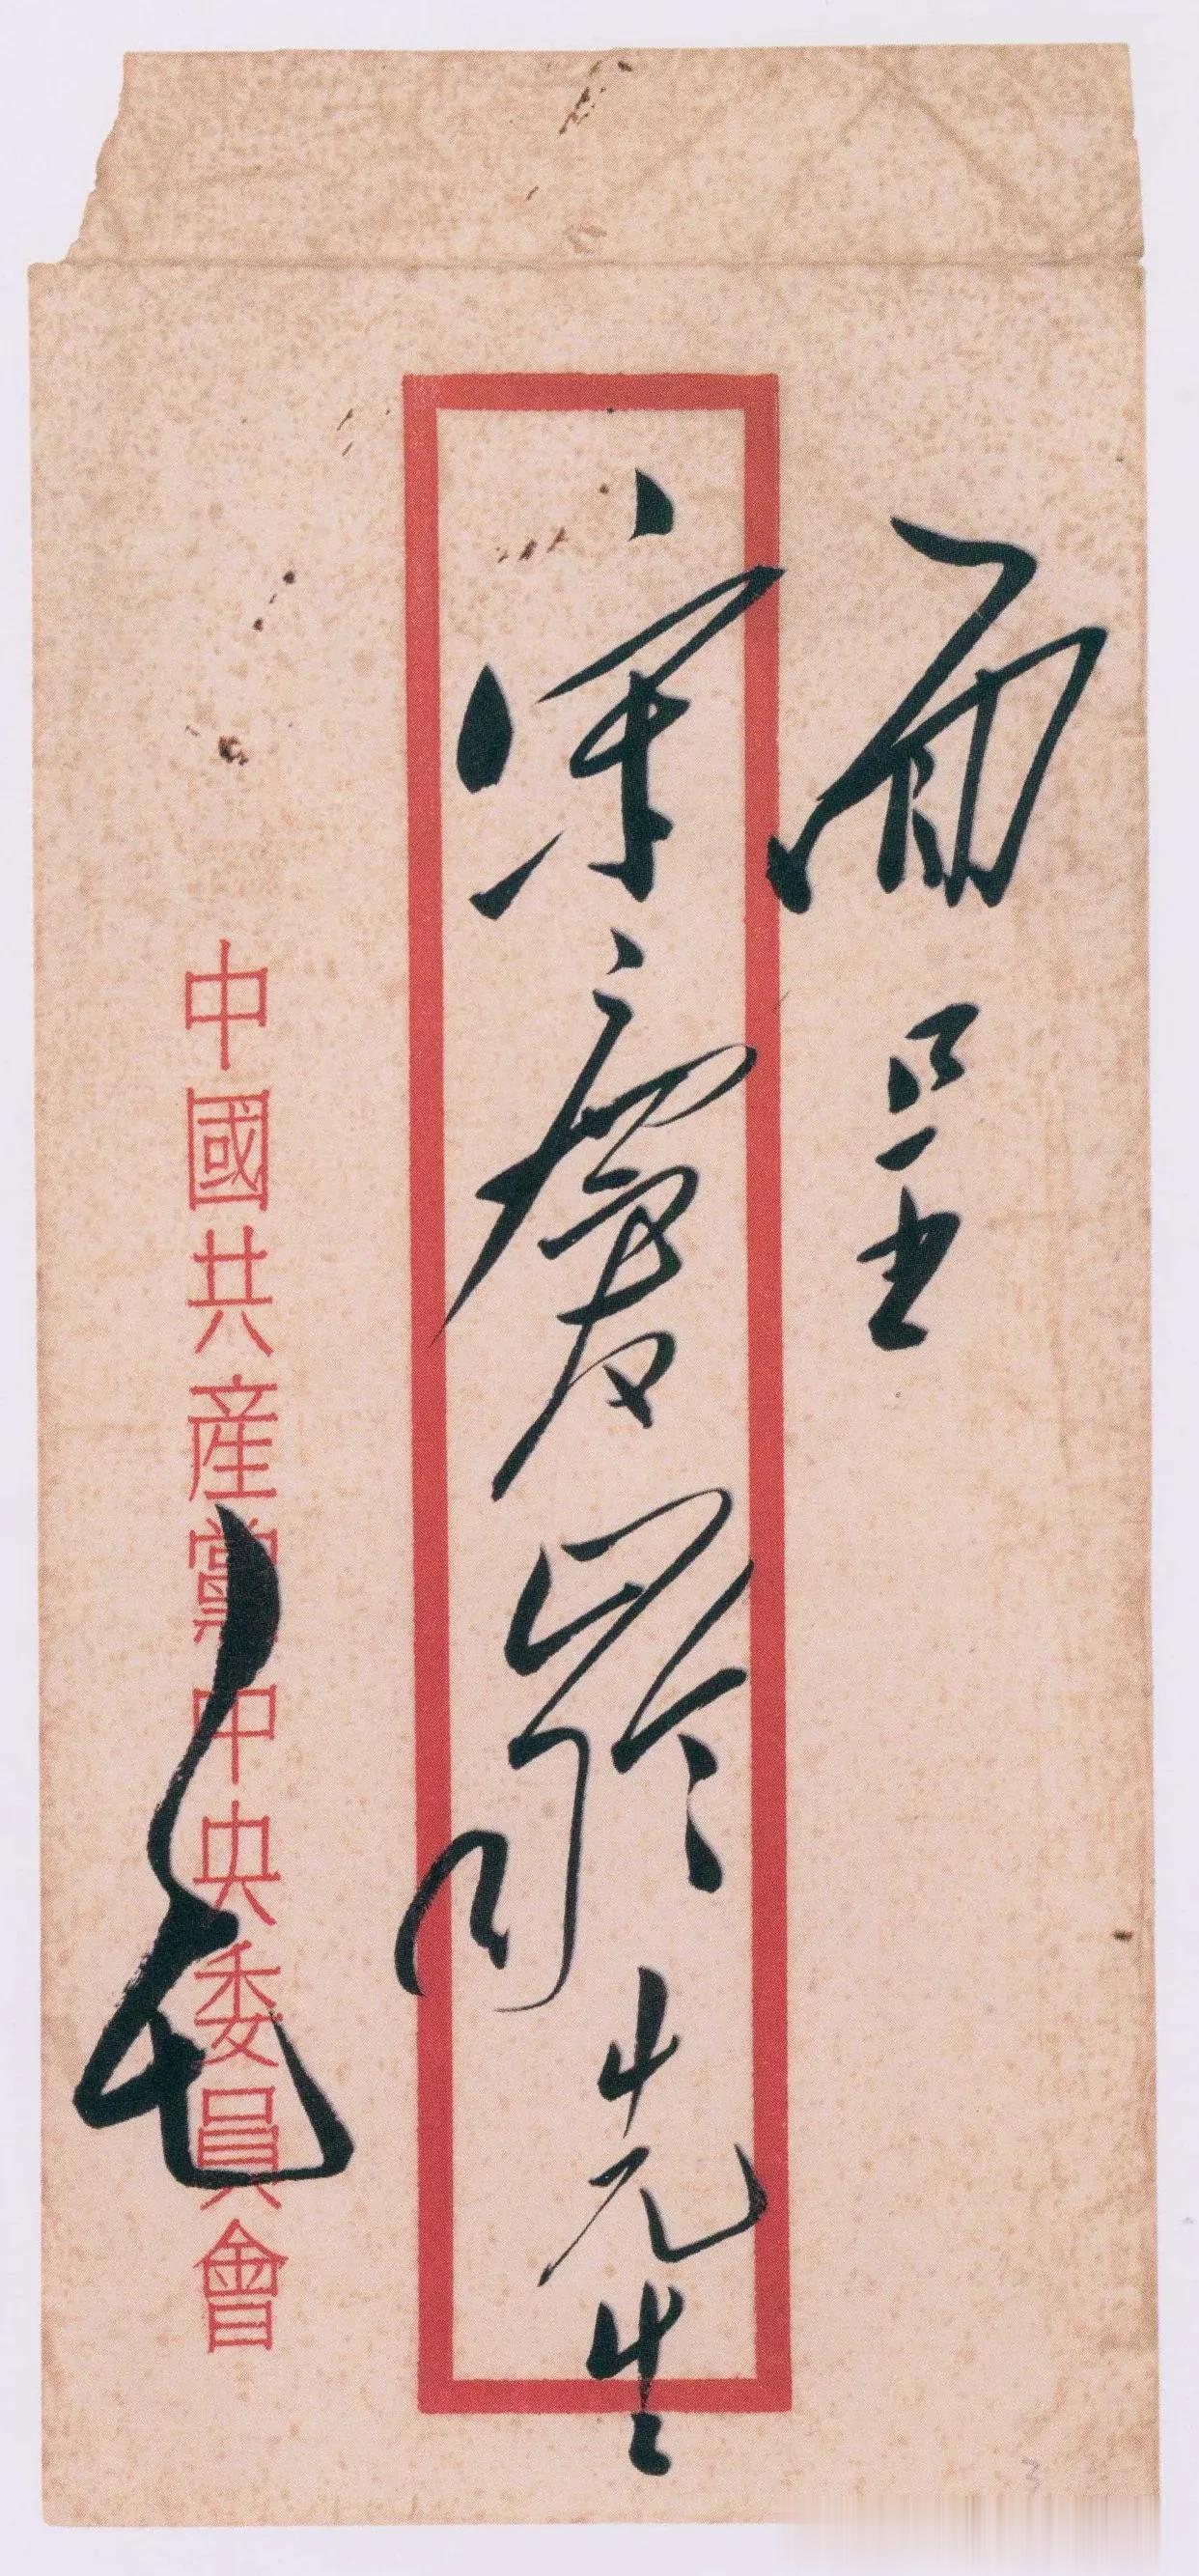 面呈
宋慶齡先生
中國共產黨中央委員會
毛